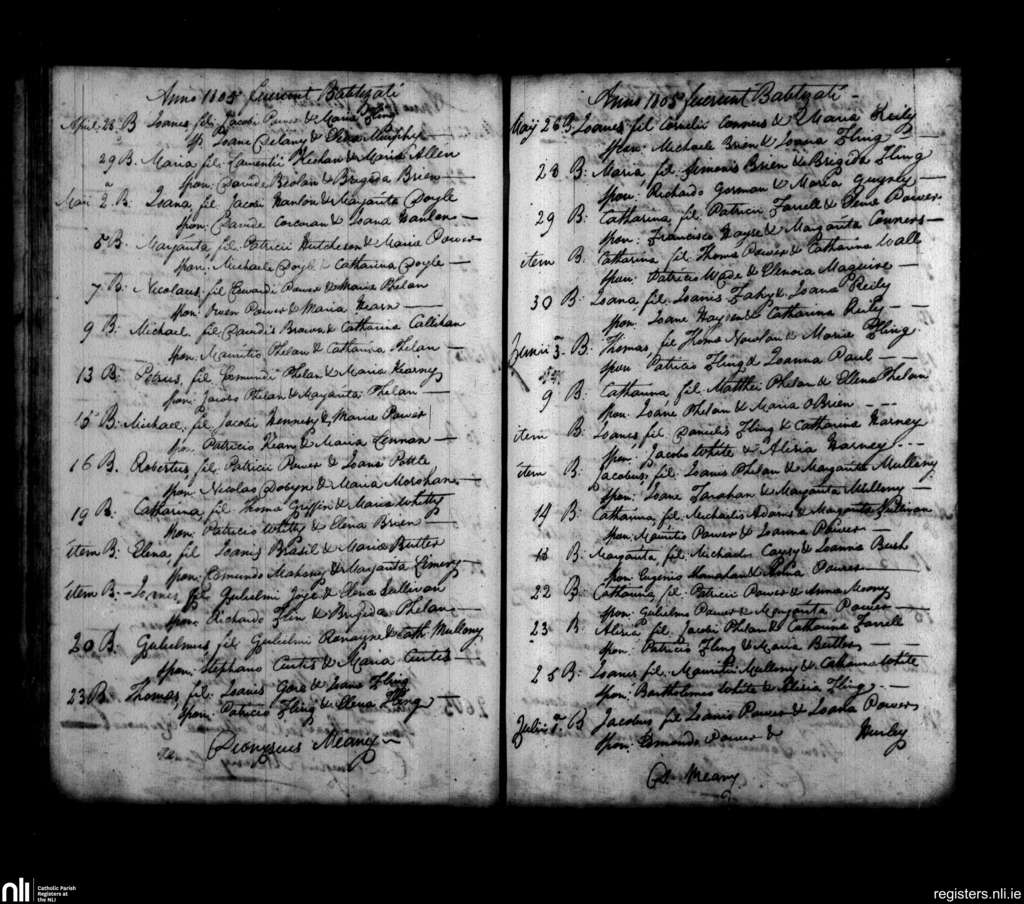 Anno 1805 fuerunt Batizati
April 28 B Ioanes fil: Jacobi Power & Maria Fling
sp: Ioane Delany & Elena Murphy
29 B. Maria fil: Laurentii Keehan & Maria Allen
spon: Davide Bolan & Brigida Brien —
Maii 2 B. Ioana, fil Jacobi Hanlon & Margarita Doyle
spon: Davide Corcoran & Ioana Hanlon —
5 B. Margarita fil: Patricii Hutcheson & Maria Power
spon: Michaele Doyle & Catharina Doyle —
7 B: Nicolaus: fil Edwardi Power & Maria Belan
spon: Owen Power & Maria Hearn —
9 B: Michael fil: Davidis Brown & Catharina Callihan
spon: Mauritio Phelan & Catharina Phelan —
13 B: Petrus, fil Edmundi Phelan & Maria Kearny
spon: Jacobo Phelan & Margarita Phelan —
15 B: Michael, fil Jacobi Hennesy & Maria Power
spon: Patricio Kean & Maria Lennan —
16 B. Robertus, fil: Patricii Power & Ioana Pottle
spon: Nicolao Dobyn & Maria Morohan —
19 B: Catharina, fil: Thoma Griffin & Maria Whitty
spon: Patricio Whitty & Elena Brien —
item B: Elena, fil Ioanis Brasil & Maria Butler
spon: Edmundo Mahony & Margarita Emery —
item B: Ioanes, fil Gulielmi Joye & Elena Sullivan
spon: Richardo Flin & Brigida Phelan —
20 B. Gulielmus fil Gulielmi Ronayne & Cath: Mullony
spon: Stephano Curtis & Maria Curtis —
23 B. Thomas, fil: Ioanis Gore & Ioana Fling
spon: Patricio Fling & Elena Fling
Dionysius Meany
Anno 1805 fuerunt Batizati —
Maij 26 B Ioanes fil Cornelii Connors & Maria Reily
spon: Michaele Brien & Ioana Fling —
28 B: Maria, fil: Simonis Brien & Brigida Fling
spon: Richardo Gorman & Maria —
29 B: Catharina, fil: Patricii Farrell & Power
spon: Francisco Hayse & Margarita Connors —
item B: Catharina fil: Thoma Power & Catharina Wall
spon: Patricio Wade & Maguire —
30 B: Ioana fil: Ioanis Fahy & Ioana Reily
spon: Ioane & Catharina Reily —
Junii 3. B: Thomas, fil Thoma Nowlan & Maria Fling
spon: Patricio Fling & Ioanna Paul —
9 B: Catharina, fil: Matthei Phelan & Ellena Phelan
spon: Ioane Phelan & Maria OBrien —
item B: Ioanes fil: Danielis Fling & Catharina Karney
spon: Jacobo White & Alicia Karney —
item B: Jacobus, fil: Ioanis Phelan & Margarita Mullony
spon: Ioane Farahan & Margarita Mullony —
14 B: Catharina, fil: Michaelis Adams & Margarita Sulivan
spon: Mauritio Power & Ioanna Power —
18 B: Margarita, fil: Michael Casy & Ioanna Bush
spon: Eugenio Monahan & Power —
22 B: Catharina, fil: Patricii Power & Anna Moony
spon: Gulielmo Power & Margarita Power —
23 B: Alicia fil, Jacobi Phelan & Catharina Farrell
spon: Patricio Fling & Maria Butler —
25 B: Ioanes, fil: Mauritii Mullony & Catharina White
spon: Bartholomeo White & Alicia Fling —
Julii B Jacobus, fil Ioanis Power & Ioana Power
spon: Edmondo Power & Hurley
D. Meany
nli
Catholic Parish
Registers at
the NLI
registers.nli.ie